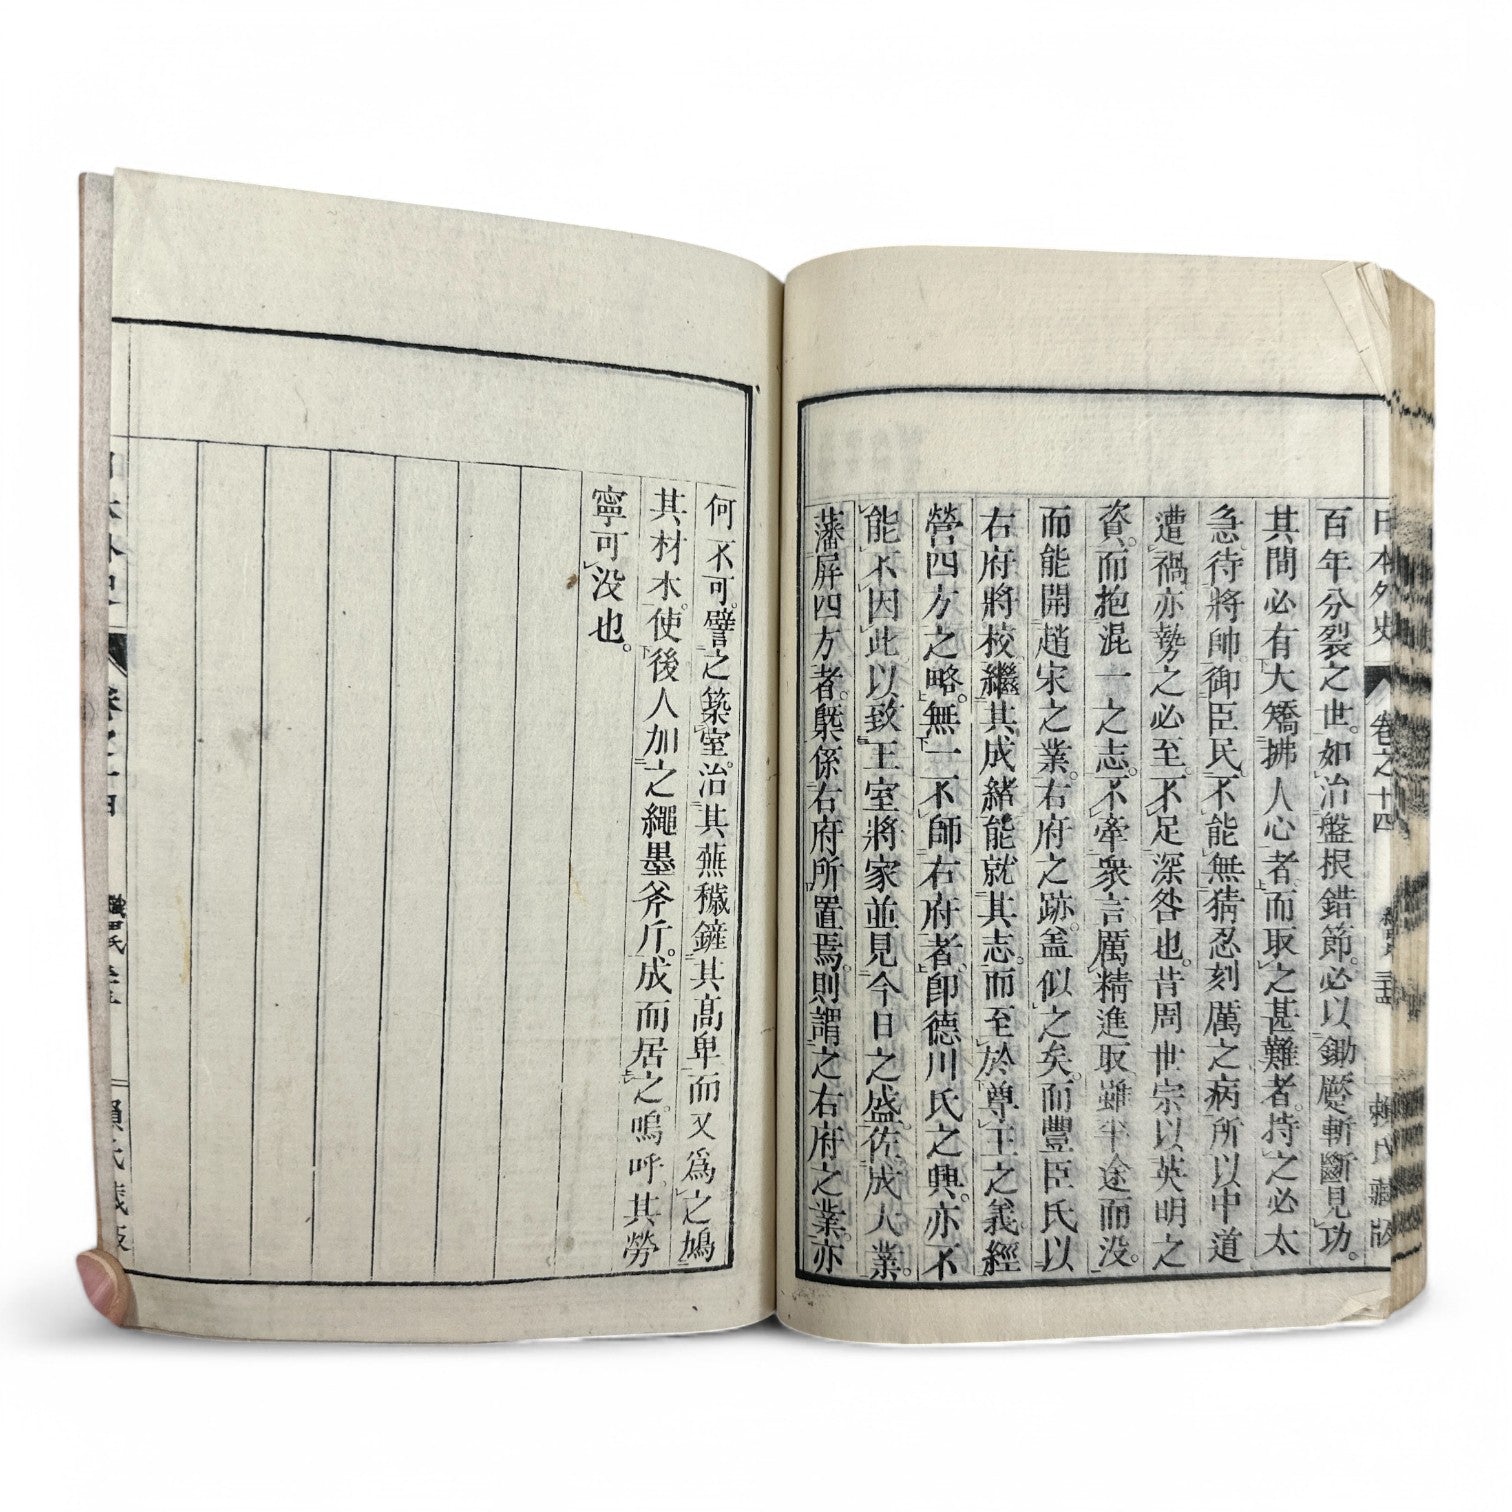 日本外史 卷之十四 賴氏藏版
百年分裂之世。如治盤根錯節。必以鋤钁斬斷見功。
其間必有大矯拂人心者。而取之甚難者。持之必太
急。待將帥御臣民。不能無猜忍刻厲之病。所以中道
遭禍。亦勢之必至。不足深咎也。昔周世宗以英明之
資。而抱混一之志。不牽衆言。厲精進取。雖半途而没。
而能開趙宋之業。右府之跡。盖似之矣。而豐臣氏以
右府將校。繼其成緒。能就其志。而至於尊王之義。經
營四方之略。無一不師右府者。卽德川氏之興。亦不
能不因此以致王室將家並見今日之盛。佐成大業。
藩屏四方者。槩係右府所置焉。則謂之右府之業。亦
何不可。譬之築室。治其蕪穢。鏟其高卑。而又爲之鳩
其材木。使後人加之繩墨斧斤。成而居之。嗚呼。其勞
寧可没也。